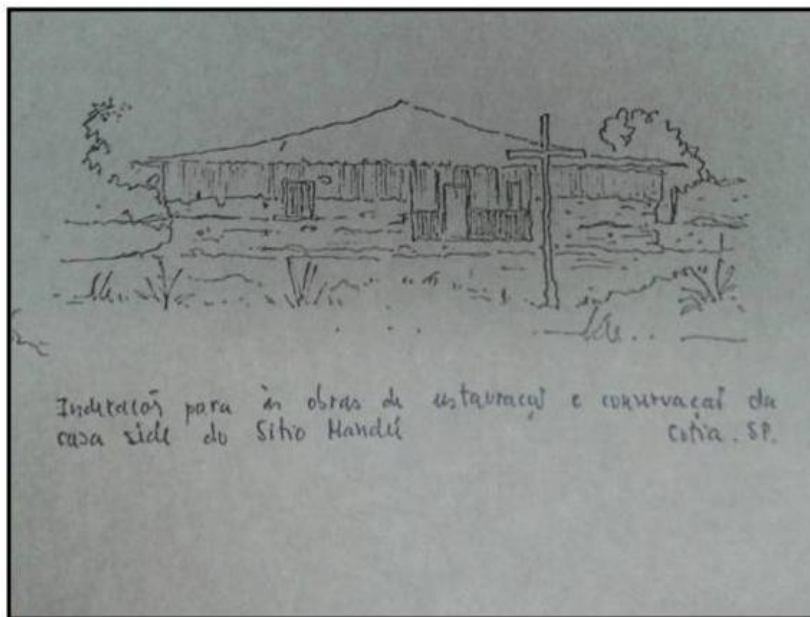 Indicações para às obras de restauraçaõ e conservaçaõ da
casa sede do Sítio Mandú Cotia. SP.